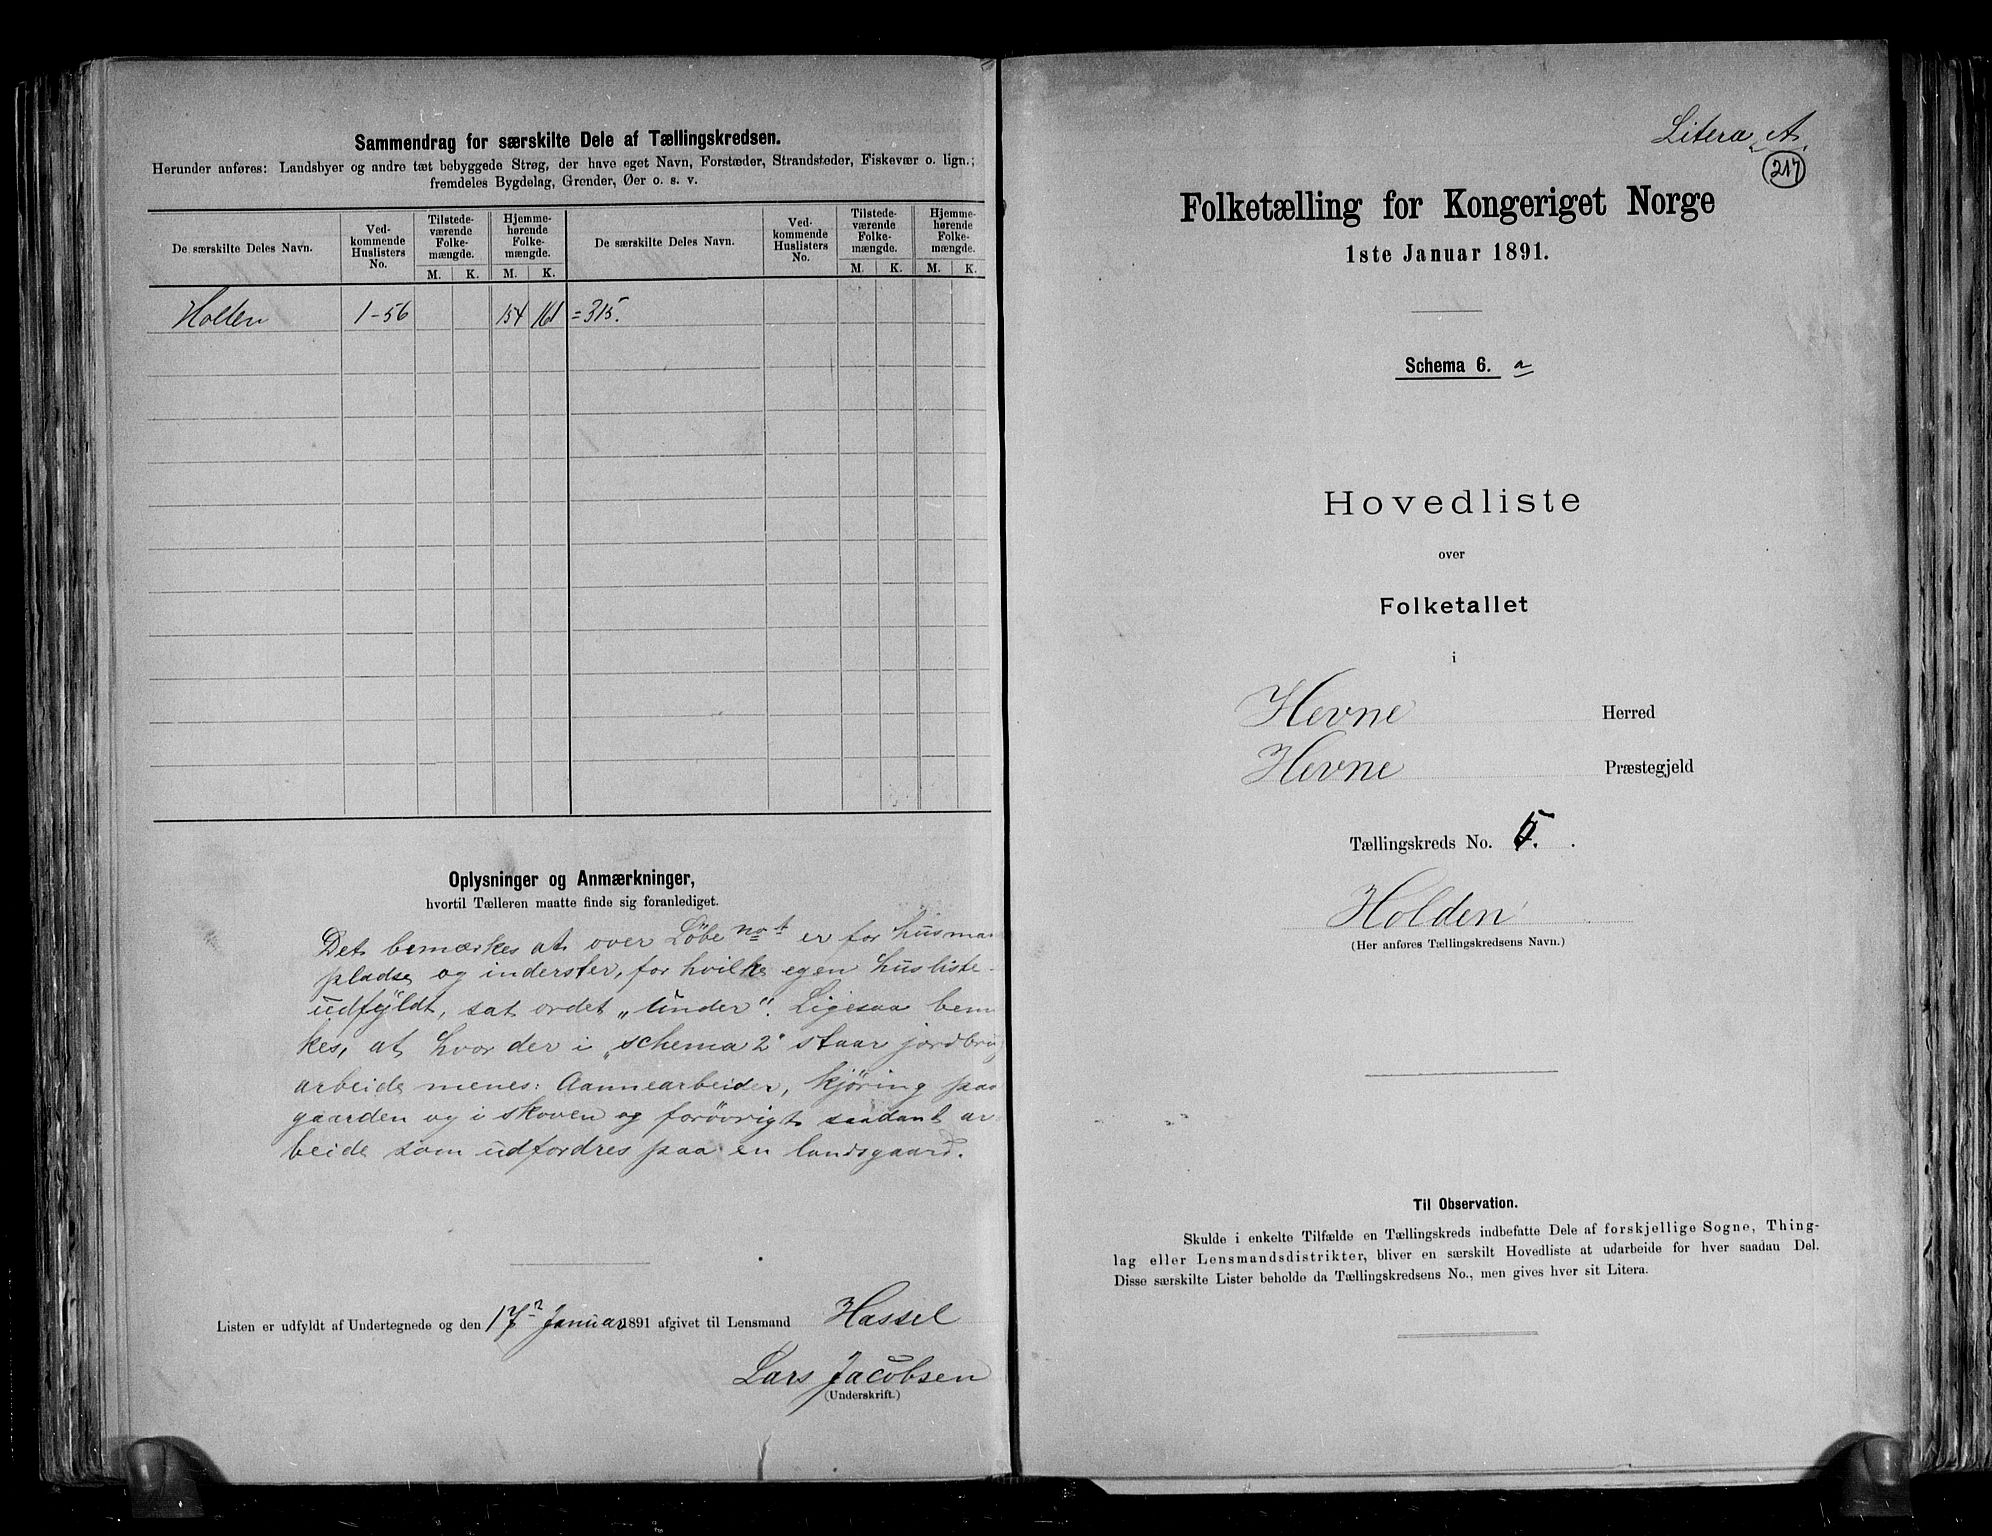 Sammendrag for særskilte Dele af Tællingskredsen.
Herunder anføres: Landsbyer og andre tæt bebyggede Strøg, der have eget Navn, Forstæder, Strandsteder, Fiskevær o. lign.;
fremdeles Bygdelag, Grender, Øer o. s. v.
De særskilte Deles Navn.
Ved-
kommende
Huslisters
No.
Tilstede-
værende
Folke-
mængde.
M. K.
Hjemme-
hørende
Folke-
mængde.
M. K.
De særskilte Deles Navn.
Ved-
kommende
Huslisters
No.
Tilstede-
værende
Folke-
mængde.
M. K.
Hjemme-
hørende
Folke-
mængde.
M. K.
Holden 1-56 154 161 =315.
Oplysninger og Anmærkninger,
hvortil Tælleren maatte finde sig foranlediget.
Det bemærkes at over Löbe er for husma
pladse og inderster, for hvilke egen husliste
udfyldt, sat ordet „under". Ligesaa bem
kes, at hvor der i „schema 2" staar jordbrug
arbeide menes: Aannearbeider, kjöring paa
gaarden og i skoven og forövrigt saadant ar
beide som udfordres paa en landsgaard.
Listen er udfyldt af Undertegnede og den 17 Januar 1891 afgivet til Lensmand Hassel
Lars Jacobsen
(Underskrift.)
Litera A.
217
Folketælling for Kongeriget Norge
1ste Januar 1891.
Schema 6. a
Hovedliste
over
Folketallet
i
Hevne Herred
Hevne Præstegjeld
Tællingskreds No. 5.
Holden
(Her anføres Tællingskredsens Navn.)
Til Observation.
Skulde i enkelte Tilfælde en Tællingskreds indbefatte Dele af forskjellige Sogne, Thing-
lag eller Lensmandsdistrikter, bliver en særskilt Hovedliste at udarbeide for hver saadan Del.
Disse særskilte Lister beholde da Tællingskredsens No., men gives hver sit Litera.